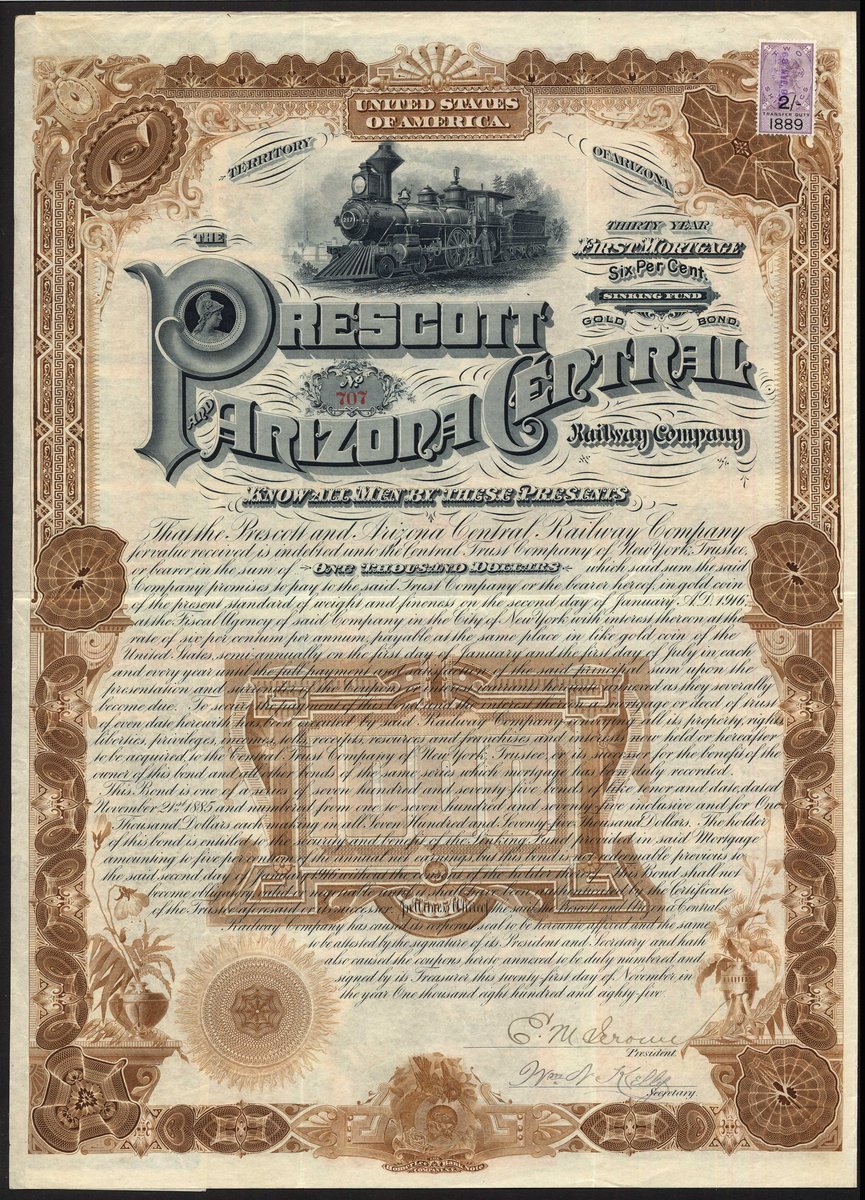 UNITED STATES
OF AMERICA.
TERRITORY OF ARIZONA
2/-
TRANSFER DUTY
1889
217
THE
THIRTY YEAR
FIRST MORTGAGE
Six Per Cent.
SINKING FUND
GOLD BOND.
PRESCOTT
No
707
AND ARIZONA CENTRAL
Railway Company
KNOW ALL MEN BY THESE PRESENTS
That the Prescott and Arizona Central Railway Company
for value received is indebted unto the Central Trust Company of New York, Trustee,
or bearer in the sum of ONE THOUSAND DOLLARS which said sum the said
Company promises to pay to the said Trust Company or the bearer hereof in gold coin
of the present standard of weight and fineness on the second day of January A.D. 1916,
at the Fiscal Agency of said Company in the City of New York with interest thereon at the
rate of six per centum per annum, payable at the same place in like gold coin of the
United States, semi-annually on the first day of January and the first day of July in each
and every year until the full payment and satisfaction of the said principal sum upon the
presentation and surrender of the coupons or interest warrants hereunto annexed as they severally
become due. To secure the payment of this bond and the interest thereon a mortgage or deed of trust
of even date herewith has been executed by said Railway Company upon all its property, rights
liberties, privileges, incomes, tolls, receipts, resources and franchises and interests now held or hereafter
to be acquired, to the Central Trust Company of New York, Trustee, or its successor for the benefit of the
owner of this bond and all other bonds of the same series which mortgage has been duly recorded.
This Bond is one of a series of seven hundred and seventy five bonds of like tenor and date, dated
November 21st 1885 and numbered from one to seven hundred and seventy five inclusive and for One
Thousand Dollars each making in all Seven Hundred and Seventy-five Thousand Dollars. The holder
of this bond is entitled to the security and benefit of the Sinking Fund provided in said Mortgage
amounting to five per centum of the annual net earnings, but this bond is not redeemable previous to
the said second day of January 1916 without the consent of the holder hereof. This bond shall not
become obligatory valid or negotiable until it shall have been authenticated by the Certificate
of the Trustee aforesaid or its successor. In Witness Whereof the said the Prescott and Arizona Central
Railway Company has caused its corporate seal to be hereunto affixed and the same
to be attested by the signature of its President and Secretary and hath
also caused the coupons hereto annexed to be duly numbered and
signed by its Treasurer this twenty-first day of November, in
the year One thousand eight hundred and eighty-five.
President.
Wm N. Kelly
Secretary.
Homer Lee Bank Note
COMPANY, N.Y.